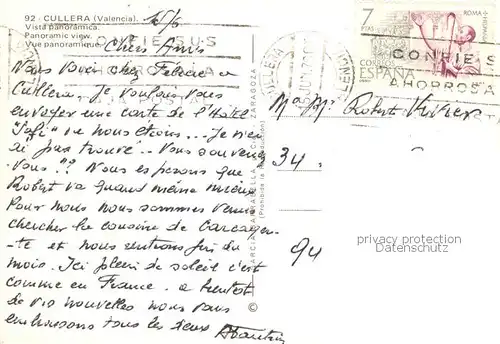 92 - CULLERA (Valencia).
Vista panorámica.
Panoramic view.
Vue panoramique.
Chers Amis
Nous voici chez Felicie a
Cullera. Je voulais vous
envoyer une carte de l'Hotel
"Safi" ou nous étions... Je n'ai
pas trouvé.. Vous souvenez
Vous"?? Nous esperons que
Robert va quand même mieux
Pour nous nous sommes venus
chercher la cousine de Carcagen-
-te et nous rentrons fin du
mois. Ici plein de soleil c'est
comme en France. a bientot
de vos nouvelles nous vous
embrassons tous les deux
GARCIA GARRABELLA
ZARAGOZA
(Prohibida la reproducción)
7
PTAS
ROMA + HISPANIA
CORREOS
ESPAÑA
CONFIE SUS
AHORROS A
CONFIE S
AHORROS A
CULLERA
Robert
34.
94
privacy protection
Datenschutz